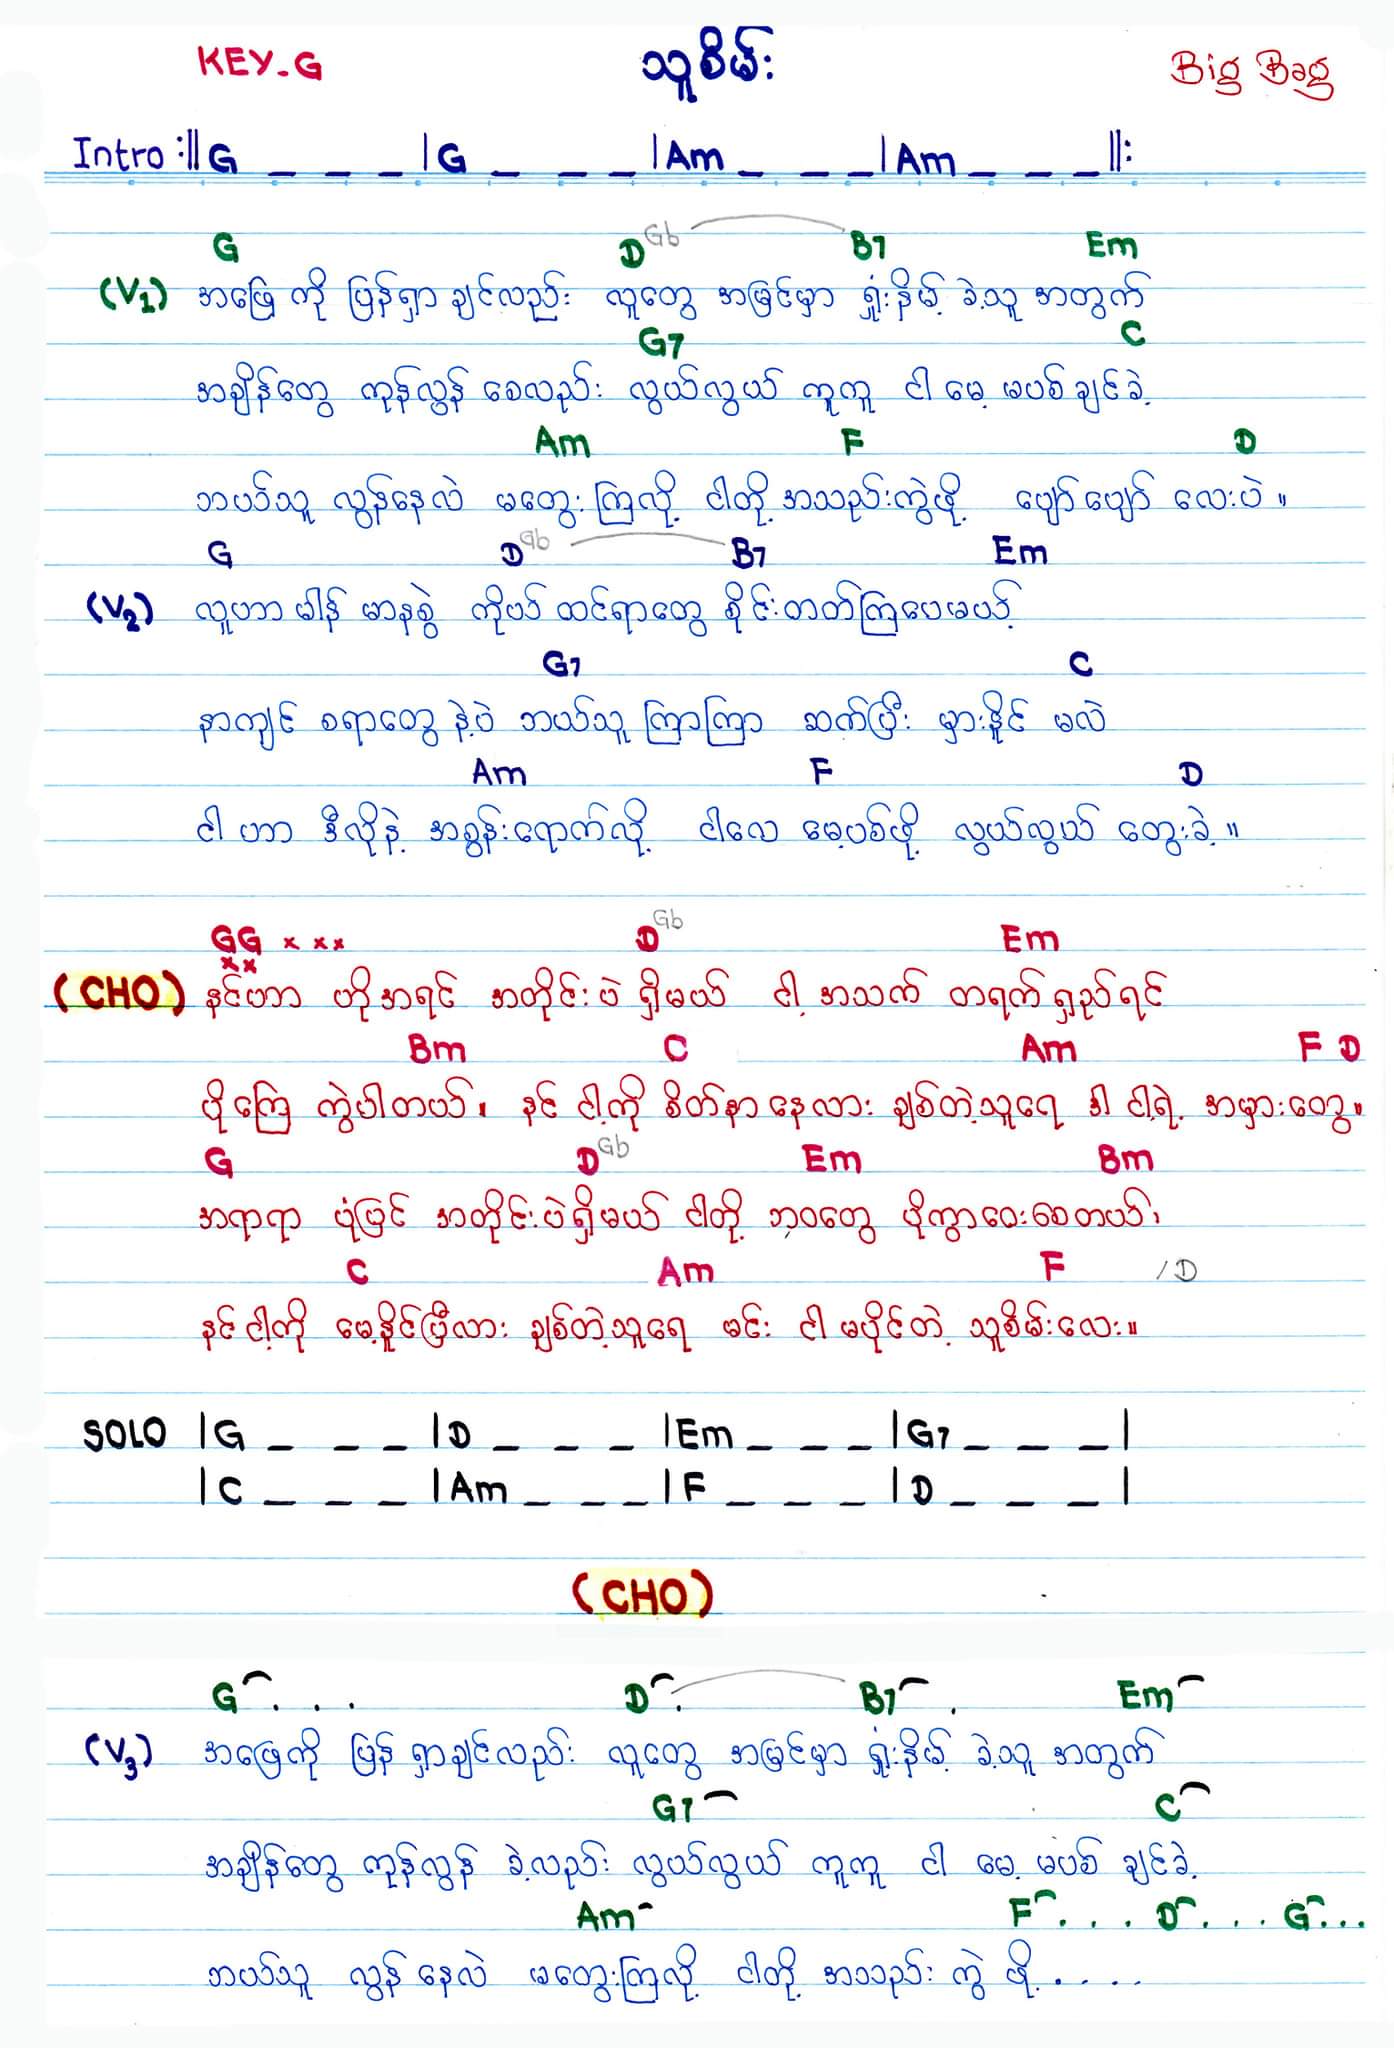 KEY-G သူစိမ်း Big Bag
Intro :|| G _ _ _ | G _ _ _ | Am _ _ _ | Am _ _ _ ||:
G D Gb B7 Em
(V1) အဖြေ ကို ပြန်ရှာ ချင်လည်း လူတွေ အမြင်မှာ ရှုံးနိမ့် ခဲ့သူ အတွက်
G7 C
အချိန်တွေ ကုန်လွန် စေလည်း လွယ်လွယ် ကူကူ ငါ မေ့ မပစ် ချင်ခဲ့
Am F D
ဘယ်သူ လွန်နေလဲ မတွေးကြလို့ ငါတို့ အသည်းကွဲဖို့ ပျော်ပျော် လေးပဲ။
G D Gb B7 Em
(V2) လူဟာ မါန် မာနစွဲ ကိုယ် ထင်ရာတွေ စိုင်းတတ်ကြပေမယ့်
G7 C
နာကျင် စရာတွေ နဲ့ပဲ ဘယ်သူ ကြာကြာ ဆက်ပြီး မှားနိုင် မလဲ
Am F D
ငါ ဟာ ဒီလိုနဲ့ အစွန်းရောက်လို့ ငါလေ မေ့ပစ်ဖို့ လွယ်လွယ် တွေးခဲ့။
GG x xx D Gb Em
xx
(CHO) နင်ဟာ ဟိုအရင် အတိုင်းပဲ ရှိမယ် ငါ့ အသက် တရက်ရှည်ရင်
Bm C Am F D
ပိုကြေ ကွဲပါတယ်၊ နင် ငါ့ကို စိတ်နာနေလား ချစ်တဲ့သူရေ ဒါ ငါ့ရဲ့ အမှားတွေ။
G D Gb Em Bm
အရာရာ ပုံပြင် အတိုင်းပဲရှိမယ် ငါတို့ ဘဝတွေ ပိုကွာဝေးစေတယ်၊
C Am F /D
နင်ငါ့ကို မေ့နိုင်ပြီလား ချစ်တဲ့သူရေ မင်း ငါ မပိုင်တဲ့ သူစိမ်းလေး။
SOLO | G _ _ _ | D _ _ _ | Em _ _ _ | G7 _ _ _ |
| C _ _ _ | Am _ _ _ | F _ _ _ | D _ _ _ |
(CHO)
G . . . D . B7 . Em
(V3) အဖြေကို ပြန် ရှာချင်လည်း လူတွေ အမြင်မှာ ရှုံးနိမ့် ခဲ့သူ အတွက်
G7 C
အချိန်တွေ ကုန်လွန် ခဲ့လည်း လွယ်လွယ် ကူကူ ငါ မေ့ မပစ် ချင်ခဲ့
Am F . . . . D . . . G . . .
ဘယ်သူ လွန်နေလဲ မတွေးကြလို့ ငါတို့ အသည်း ကွဲ ဖို့ . . . .